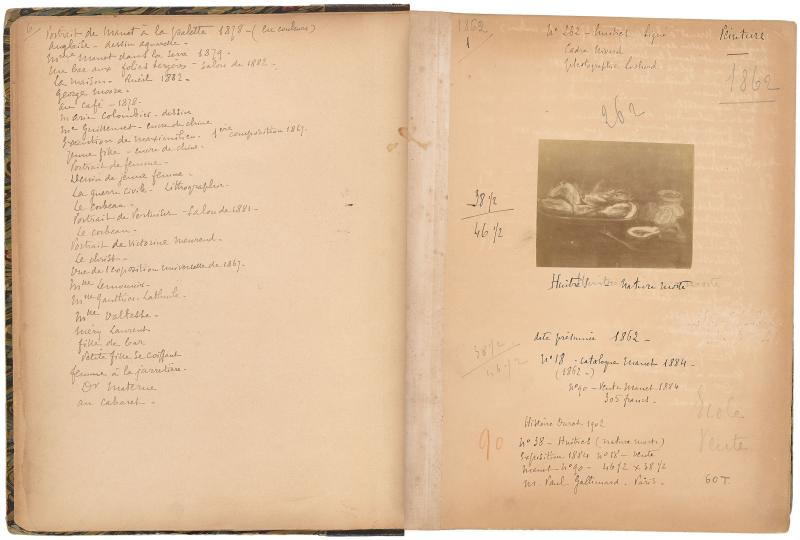 Portrait de Manet à la palette 1878 - (en couleurs)
Anglaise - dessin aquarelle -
Mme Manet dans la serre 1879 -
Un bar aux folies bergère - Salon de 1882 -
La maison - Rueil 1882 -
George Moore -
Au café - 1878 -
Marie Colombier - dessin
Me Guillemet - encre de chine
Exécution de Maximilien - 1ère composition 1867 -
Jeune fille - encre de chine -
Portrait de femme -
Dessin de jeune femme -
La guerre civile - Lithographie -
Le corbeau -
Portrait de Pertuiset - Salon de 1881 -
Le corbeau -
Portrait de Victorine Meurend -
Le christ -
Vue de l'exposition universelle de 1867 -
Mme Lemonnier -
Mme Gauthier Lathuile -
Mme Valtesse -
Méry Laurent
fille de bar
Petite fille se coiffant
femme à la jarretière -
Dr Materne
au cabaret -
1862
1
No 262 - Huitres Signé
Cadre
photographie Lochard
Peinture
1862
262
38 1/2
46 1/2
Huitres nature morte
date présumée 1862 -
38 1/2
46 1/2
No 18 - catalogue Manet 1884 -
(1862 -)
No 90 - Vente Manet 1884
305 francs -
Ecole
Vente
Histoire Duret 1902
90
No 38 - Huitres (nature morte)
Exposition 1884 No 18 - Vente
Manet - No 90 - 46 1/2 x 38 1/2
M. Paul Gallimard - Paris -
60 T